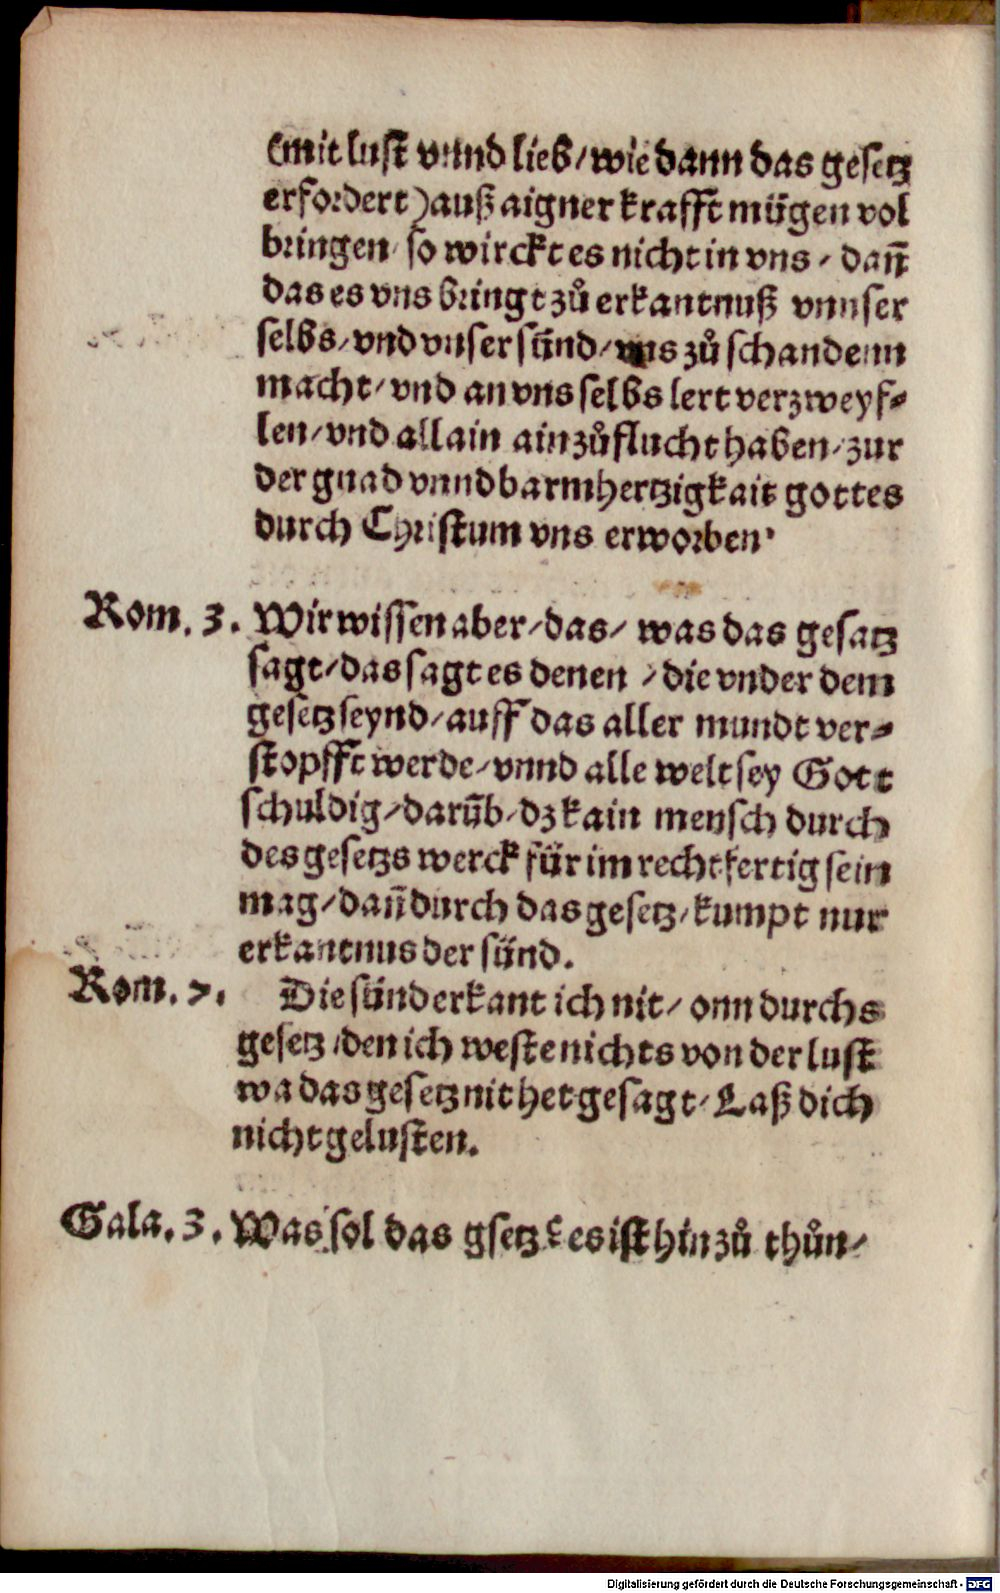 (mit lust vnnd lieb/wie dann das gesetz
erfordert) auß aigner krafft mügen vol
bringen/so wirckt es nicht in vns/dañ
das es vns bringt zů erkantnuß vnnser
selbs/vnd vnser sünd/vns zů schandenn
macht/vnd an vns selbs lert verzweyf⸗
len/vnd allain ain zůflucht haben/zur
der gnad vnnd barmhertzigkait gottes
durch Christum vns erworben.
Rom. 3. Wir wissen aber/das/ was das gesatz
sagt/das sagt es denen /die vnder dem
gesetz seynd/auff das aller mundt ver⸗
stopfft werde/vnnd alle welt sey Gott
schuldig/darüb/dz kain mensch durch
des gesetzs werck für im rechtfertig sein
mag/dañ durch das gesetz/kumpt nur
erkantnus der sünd.
Rom. 7. Die sünd erkant ich nit/ onn durchs
gesetz/den ich weste nichts von der lust
wa das gesetz nit het gesagt/Laß dich
nicht gelusten.
Gala. 3. Was sol das gsetz? es ist hin zů thůn/
Digitalisierung gefördert durch die Deutsche Forschungsgemeinschaft - DFG